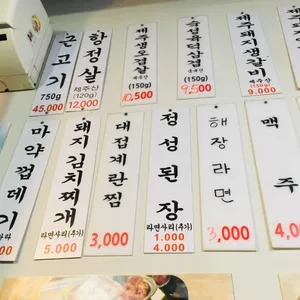 근고기
750g
45,000
항정살
제주산
(120g)
12,000
제주생오겹살
제주산
(150g)
10,500
숙성목덕살
(150g)
9,500
제주돼지생갈비
제주산
(150g)
9.000
마약껍데기
돼지김치찌개
라면사리(추가)
5.000
대접계란찜
3,000
정성된장
라면사리(추가)
1.000
4.000
해장라면
3,000
맥주
4,0